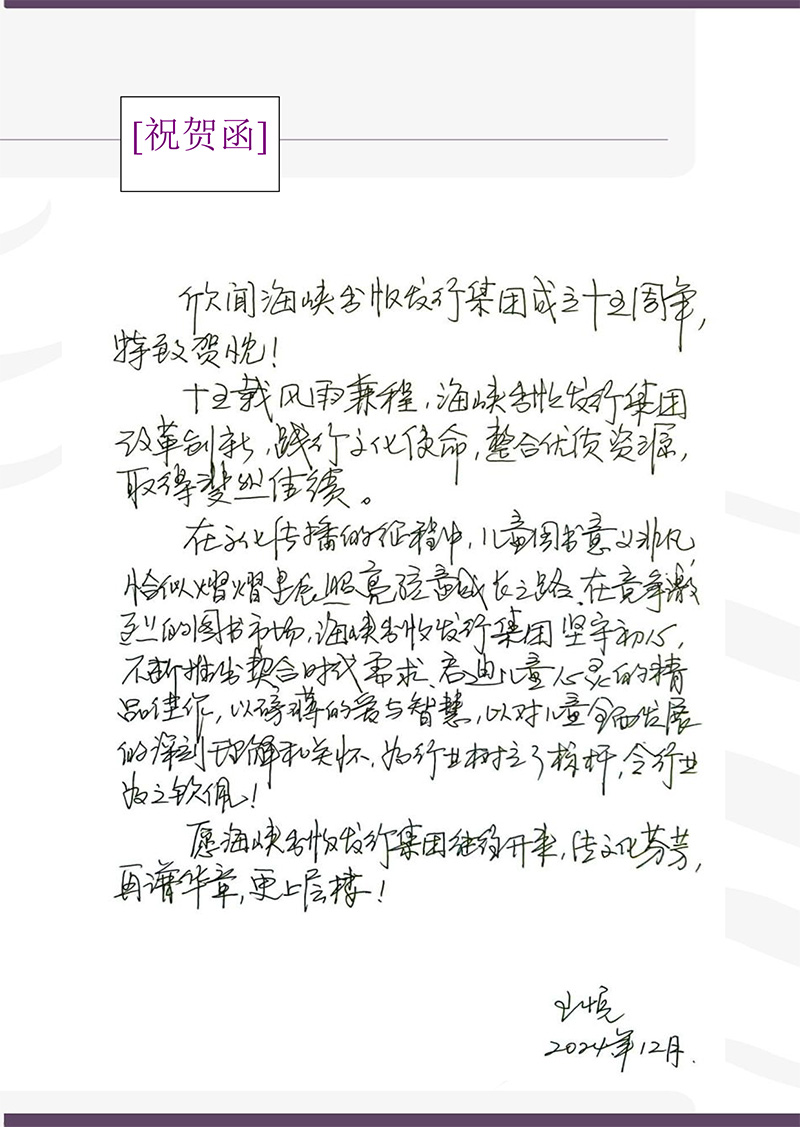 [祝贺函]
欣闻海峡出版发行集团成立十五周年,
特致贺忱!
十五载风雨兼程,海峡出版发行集团
改革创新,践行文化使命,整合优质资源,
取得斐然佳绩。
在文化传播的征程中,儿童图书意义非凡
恰似熠熠星光照亮孩童成长之路.在竞争激
烈的图书市场,海峡出版发行集团坚守初心,
不断推出契合时代需求、启迪儿童心灵的精
品佳作,以磅礴的爱与智慧,以对儿童全面发展
的深刻理解和关怀,为行业树立了标杆,令行业
为之钦佩!
愿海峡出版发行集团继往开来,传文化芬芳,
再谱华章,更上层楼!
2024年12月.